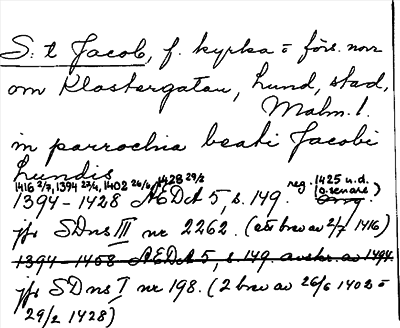 S:t Jacob, f. kyrka o förs. norr
om Klostergatan, Lund, stad,
Malm. l.
in parrochia beati Jacobi
Lundis
1416 2/7, 1394 23/4, 1402 26/6, 1428 29/2
1394-1428 ÆDA 5, s. 149. reg. 1425 u.d. (o. senare)
jfr SDns III nr 2262. (ett brev av 2/7 1416)
1394-1408 ÆDA 5, s. 149. avskr. av 1494
jfr SDns I nr 198. (2 brev av 26/6 1402 o
29/2 1428)